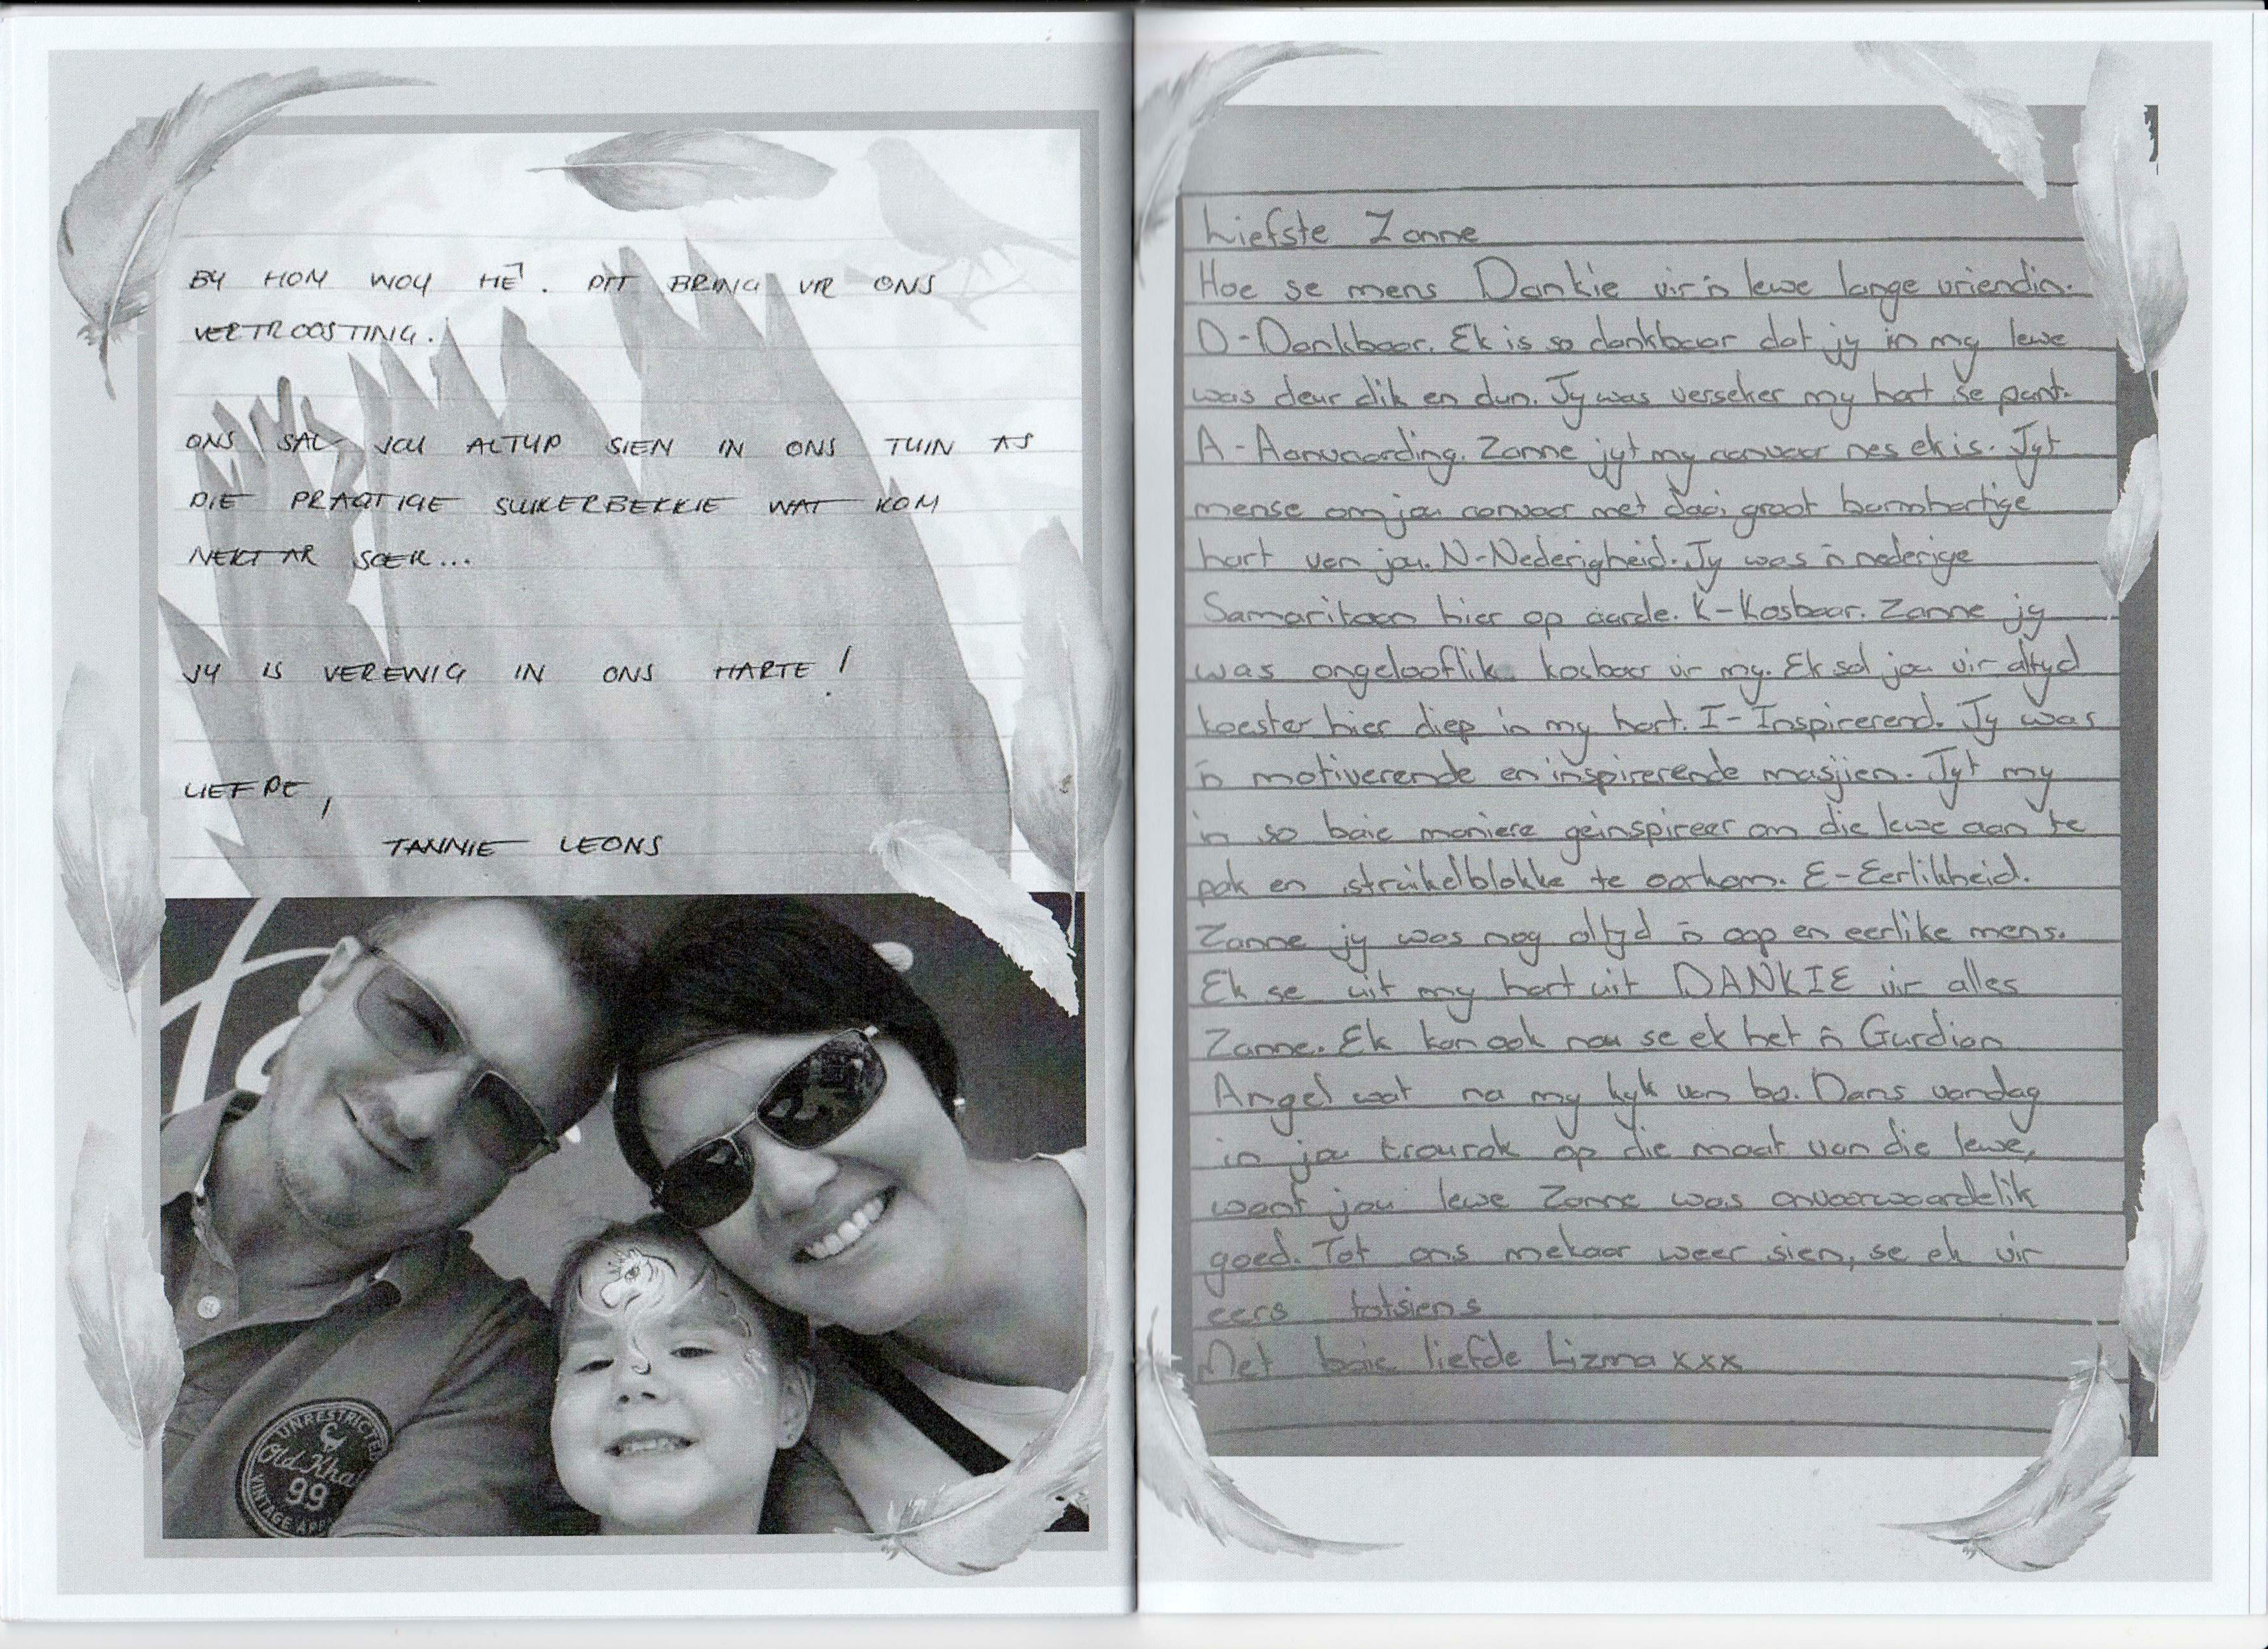 BY HOM WOU HÊ. DIT BRING VIR ONS
VERTROOSTING.
ONS SAL JOU ALTYD SIEN IN ONS TUIN AS
DIE PRAGTIGE SUIKERBEKKIE WAT KOM
NEKTAR SOEK...
JY IS VEREWIG IN ONS HARTE!
LIEFDE,
TANNIE LEONS
UNRESTRICTED
Old Khaki
99
VINTAGE APP
Liefste Zanne
Hoe se mens Dankie vir 'n lewe lange vriendin.
D-Dankbaar. Ek is so dankbaar dat jy in my lewe
was deur dik en dun. Jy was verseker my hart se punt.
A-Aanvaarding. Zanne jyt my aanvaar nes ek is. Jyt
mense om jou aanvaar met daai groot barmhartige
hart van jou. N-Nederigheid. Jy was 'n nederige
Samaritaan hier op aarde. K-Kosbaar. Zanne jy
was ongelooflik kosbaar vir my. Ek sal jou vir altyd
koester hier diep in my hart. I-Inspirerend. Jy was
'n motiverende en inspirerende masjien. Jyt my
in so baie maniere geinspireer om die lewe aan te
pak en struikelblokke te oorkom. E-Eerlikheid.
Zanne jy was nog altyd 'n oop en eerlike mens.
Ek se uit my hart uit DANKIE vir alles
Zanne. Ek kan ook nou se ek het 'n Gurdian
Angel wat na my kyk van bo. Dans vandag
in jou trourok op die maat van die lewe,
want jou lewe Zanne was onvoorwaardelik
goed. Tot ons mekaar weer sien, se ek vir
eers totsiens
Met baie liefde Lizma xxx